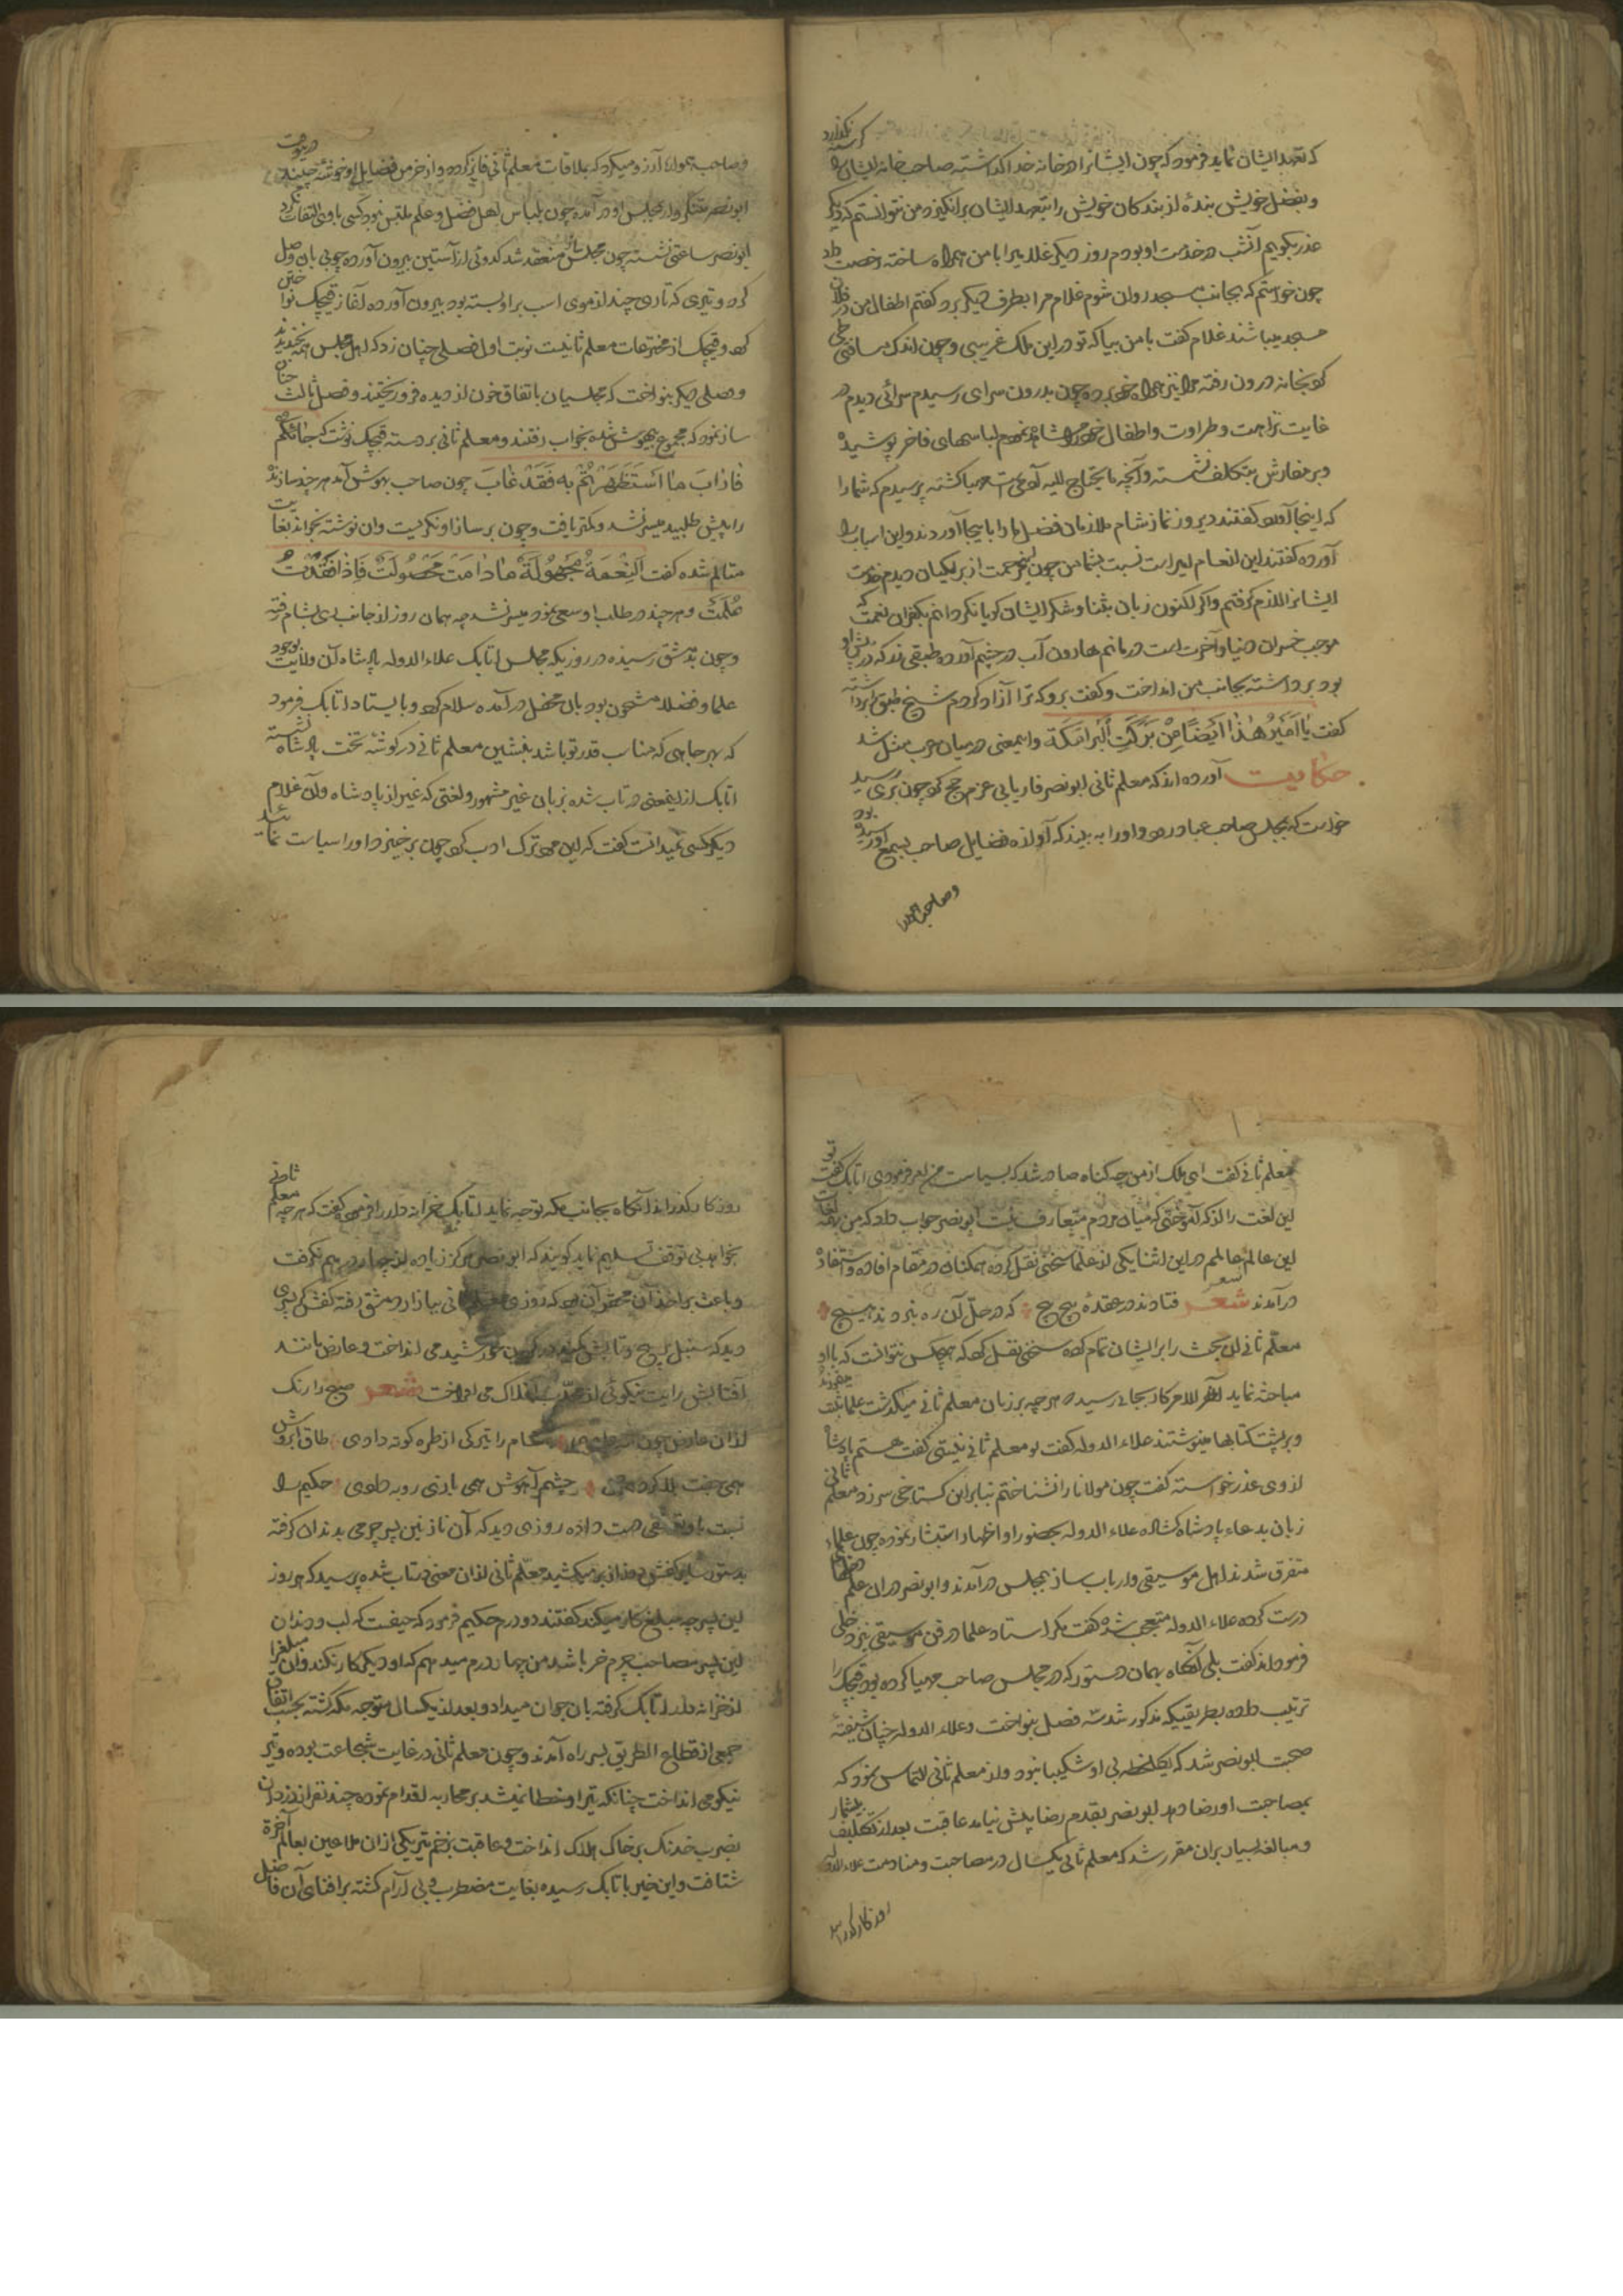 که تعهد ایشان نماید فرمود که چون ایشانرا در خانه خدا گذاشته صاحب خانه ایشان را گرسنه نگذارد
و بفضل خویش بندهٔ از بندگان خویش را بتعهد ایشان برانگیزد من نتوانستم که دیگر
عذر بگویم آنشب در خدمت او بودم روز دیگر غلامیرا با من همراه ساخته رخصت داد
چون خواستم که بجانب مسجد روان شوم غلام مرا بطرف دیگر برد گفتم اطفال من در فلان
مسجد میباشند غلام گفت با من بیا که تو در این ملک غریبی و چون اندک مسافتی طی
کرد بخانه درون رفته مرا نیز همراه خود برد چون بدرون سرای رسیدم سرائی دیدم در
غایت نزاهت و طراوت و اطفال خود را مشاهده نمودم لباسهای فاخر پوشیده
و بر مفارش بتکلف نشسته و آنچه ما یحتاج الیه آدمی است مهیا گشته پرسیدم که شما را
که اینجا آورد گفتند دیروز نماز شام ملازمان فضل ما را باینجا آوردند و این اسباب را
آورده گفتند این انعام امیر است نسبت بشما من چون این مرحمت از برمکیان دیدم خدمت
ایشانرا لازم گرفتم و اگر اکنون زبان بثنا و شکر ایشان گویا نگردانم بکفران نعمت که
موجب خسران دنیا و آخرت است درمانم هارون آب در چشم آورده طبقی زر که در پیش او
بود برداشته بجانب من انداخت و گفت برو که ترا آزاد کردم شیخ طبق زر برداشته
گفت یا امیر هذا ایضا من برکت البرامکة و اینمعنی در میان عرب مثل شد
حکایت آورده اند که معلم ثانی ابونصر فاریابی عزم حج کرد چون بری رسید
خواست که بمجلس صاحب عباد رود و او را به بیند که آوازه فضایل صاحب بسمع او رسیده بود
و صاحب همواره
و صاحب همواره آرزو میکرد که بملاقات معلم ثانی فایز گردد و از خرمن فضایل او خوشه چیند در صورت
ابونصر متنکروار بمجلس او در آمده چون بلباس اهل فضل و علم ملتبس نبود کسی باو التفات نکرد
ابونصر ساعتی نشسته چون مجلس ساز منعقد شد کدوئی از آستین بیرون آورده چوبی بان وصل
کرد و تیری که تاری چند از موی اسب بر او بسته بود بیرون آورده آغاز قیچک نواختن
کرد و قیچک از مخترعات معلم ثانیست نوبت اول فصلی چنان زد که اهل مجلس همه بخندیدند
و فصلی دیگر بنواخت که مجلسیان باتفاق خون از دیده فرو ریختند و فصل ثالث چنان
ساز نمود که مجموع بیهوش شده بخواب رفتند و معلم ثانی بر دسته قیچک نوشت که جائکم
فاراب ما استظهرتم به فقد غاب چون صاحب بهوش آمد هر چند سازنده
را پیش طلبید میسر نشد و کمتر یافت و چون بر ساز او نگریست و ان نوشته بخواند بغایت
متالم شده گفت النعمة مجهولة ما دامت محصولة فاذا فقدت
علمت و هر چند در طلب او سعی نمود میسر نشد چه همان روز از جانب ری بشام رفته
و چون بدمشق رسیده در روزیکه مجلس اتابک علاء الدوله پادشاه آن ولایت بوجود
علما و فضلا مشحون بود بان محفل در آمده سلام کرد و بایستاد اتابک فرمود
که بهر جایی که مناسب قدر تو باشد بنشین معلم ثانی در گوشه تخت پادشاه نشسته
اتابک از اینمعنی در تاب شده بزبان غیر مشهور و لغتی که غیر از پادشاه و آن غلام
دیگر کسی نمیدانست گفت که این مرد ترک ادب کرد چون برخیزد او را سیاست نمائید
معلم ثانی گفت ای ملک از من چه گناه صادر شد که بسیاست من امر فرمودی اتابک گفت تو
این لغت را از که آموختی که میان مردم متعارف نیست ابونصر جواب داد که من بهمه لغات
این عالم عالمم در این اثنا یکی از علما سخنی نقل کرده همگنان در مقام افاده و استفاده
در آمدند شعر فتادند در عقدهٔ پیچ پیچ که در حل آن ره نبردند هیچ
معلم ثانی آن بحث را بر ایشان تمام کرده سخنی نقل کرد که هیچکس نتوانست که با او
مباحثه نماید آخر الامر کار بجائی رسید که هر چه بر زبان معلم ثانی میگذشت علما ثبت میکردند
و بر پشت کتابها مینوشتند علاء الدوله گفت تو معلم ثانی نیستی گفت هستم پادشاه
از وی عذر خواسته گفت چون مولانا را نشناختم بنابراین گستاخی سر زد معلم ثانی
زبان بدعاء پادشاه گشاده علاء الدوله بحضور او اظهار استبشار نموده چون علماء
متفرق شدند اهل موسیقی و ارباب ساز بمجلس در آمدند و ابونصر در ان علم دخلها
درست کرده علاء الدوله متعجب شده گفت مگر استاد علما در فن موسیقی نیز دخلی
فرموده اند گفت بلی آنگاه بهمان دستور که در مجلس صاحب مهیا کرده بود قیچک را
ترتیب داده بطریقیکه مذکور شد سه فصل بنواخت و علاء الدوله چنان شیفته
صحبت ابونصر شد که یکلحظه بی او شکیبا نبود و از معلم ثانی التماس نمود که
بمصاحبت او رضا دهد ابونصر بقدم رضا پیش نیامد عاقبت بعد از تکلیف بیشمار
و مبالغه بسیار بران مقرر شد که معلم ثانی یکسال در مصاحبت و منادمت علاء الدوله
روزگار گذراند
روزگار گذراند آنگاه بجانب مکه توجه نماید اتابک خزانه دار را فرمود گفت که هر چه معلم ثانی
بخواهد بی توقف تسلیم نماید گویند که ابونصر هرگز زیاده از چهار درهم نگرفت
و باعث بر اخذ آن محقر آن بود که روزی معلم ثانی ببازار دمشق رفته کفشگر پسری
دید که سنبل پر پیچ و تابش کمند در گردن خورشید می انداخت و عارض مانند
آفتابش رایت نیکوئی از محدب افلاک می افراخت شعر صبح را رنگ
از ان عارض چون شام را تیرگی از طره کوته دادی طاق ابروش
همی جفت بلا کردی چشم آهوش همی بازی روبه دادی حکیم را
نسبت باو تعلقی دست داده روزی دید که آن نازنین پسر چرمی بدندان گرفته
بدستور سایر کفش دوزان بر میکشید معلم ثانی از ان معنی در تاب شده پرسید که هر روز
این پسر چه مبلغ کار میکند گفتند دو درم حکیم فرمود که حیفست که لب و دندان
این پسر مصاحب چرم خر باشد من چهار درم میدهم که او دیگر کار نکند و آن مبلغ را
از خزانه دار اتابک گرفته بان جوان میداد و بعد از یکسال متوجه مکه گشته بحسب اتفاق
جمعی از قطاع الطریق بسر راه آمدند و چون معلم ثانی در غایت شجاعت بوده و تیر
نیکو می انداخت چنانکه تیر او خطا نمیشد بر محاربه اقدام نموده چند نفر از دزدان
بضرب خدنگ بر خاک هلاک انداخت و عاقبت بزخم تیر یکی از ان ملاعین بعالم آخرة
شتافت و این خبر باتابک رسیده بغایت مضطرب و بی آرام گشته بر افنای آن فاضل